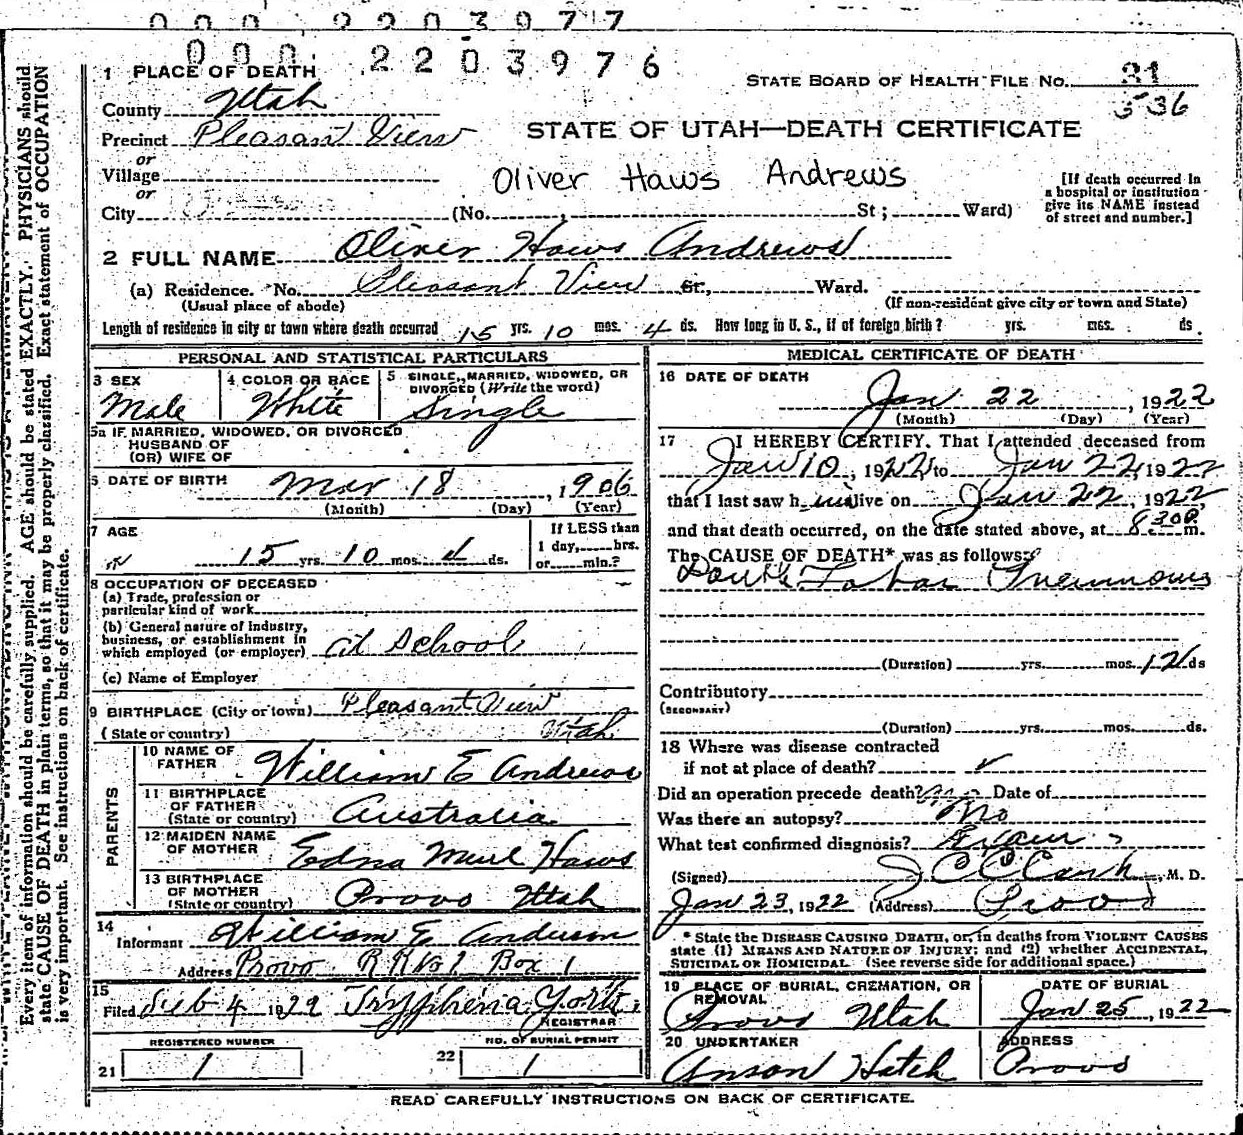 000 2203977
000 2203976
1 PLACE OF DEATH
STATE BOARD OF HEALTH FILE No. 31
536
County Utah
Precinct Pleasant View
STATE OF UTAH—DEATH CERTIFICATE
or
Village
or
Oliver Haws Andrews
[If death occurred in a hospital or institution give its NAME instead of street and number.]
City (No. , St; Ward)
2 FULL NAME Oliver Haws Andrews
(a) Residence. No. Pleasant View St., Ward.
(Usual place of abode) (If non-resident give city or town and State)
Length of residence in city or town where death occurred 15 yrs. 10 mos. 4 ds. How long in U. S., if of foreign birth? yrs. mos. ds.
PERSONAL AND STATISTICAL PARTICULARS
3 SEX
Male
4 COLOR OR RACE
White
5 SINGLE, MARRIED, WIDOWED, OR DIVORCED (Write the word)
Single
5a IF MARRIED, WIDOWED, OR DIVORCED
HUSBAND OF
(OR) WIFE OF
6 DATE OF BIRTH Mar 18, 1906
(Month) (Day) (Year)
7 AGE
15 yrs. 10 mos. 4 ds.
If LESS than
1 day, hrs.
or min.?
8 OCCUPATION OF DECEASED
(a) Trade, profession or
particular kind of work
(b) General nature of industry,
business, or establishment in
which employed (or employer) at School
(c) Name of Employer
9 BIRTHPLACE (City or town) Pleasant View
(State or country) Utah
PARENTS
10 NAME OF
FATHER William E Andrews
11 BIRTHPLACE
OF FATHER
(State or country) Australia
12 MAIDEN NAME
OF MOTHER Edna Haws
13 BIRTHPLACE
OF MOTHER
(State or country) Provo Utah
14
Informant William E
Address Provo R R No 1 Box 1
15
Filed Feb 4 19 Tryphena
REGISTRAR
REGISTERED NUMBER
21 1
NO. OF BURIAL PERMIT
22 1
MEDICAL CERTIFICATE OF DEATH
16 DATE OF DEATH
Jan 22, 1922
(Month) (Day) (Year)
17 I HEREBY CERTIFY, That I attended deceased from
Jan 10, 1922, to Jan 22, 1922
that I last saw h im alive on Jan 22, 1922,
and that death occurred, on the date stated above, at 8 30 m.
The CAUSE OF DEATH* was as follows:
Double Lobar Pneumonia
(Duration) yrs. mos. 12 ds
Contributory
(SECONDARY)
(Duration) yrs. mos. ds.
18 Where was disease contracted
if not at place of death?
Did an operation precede death? no Date of
Was there an autopsy? No
What test confirmed diagnosis?
(Signed) J C , M. D.
Jan 23, 1922 (Address) Provo
* State the DISEASE CAUSING DEATH, or, in deaths from VIOLENT CAUSES
state (1) MEANS AND NATURE OF INJURY; and (2) whether ACCIDENTAL,
SUICIDAL OR HOMICIDAL. (See reverse side for additional space.)
19 PLACE OF BURIAL, CREMATION, OR
REMOVAL
Provo Utah
DATE OF BURIAL
Jan 25, 1922
20 UNDERTAKER
Anson Hatch
ADDRESS
Provo
READ CAREFULLY INSTRUCTIONS ON BACK OF CERTIFICATE.
Every item of information should be carefully supplied. AGE should be stated EXACTLY. PHYSICIANS should
state CAUSE OF DEATH in plain terms, so that it may be properly classified. Exact statement of OCCUPATION
is very important. See instructions on back of certificate.